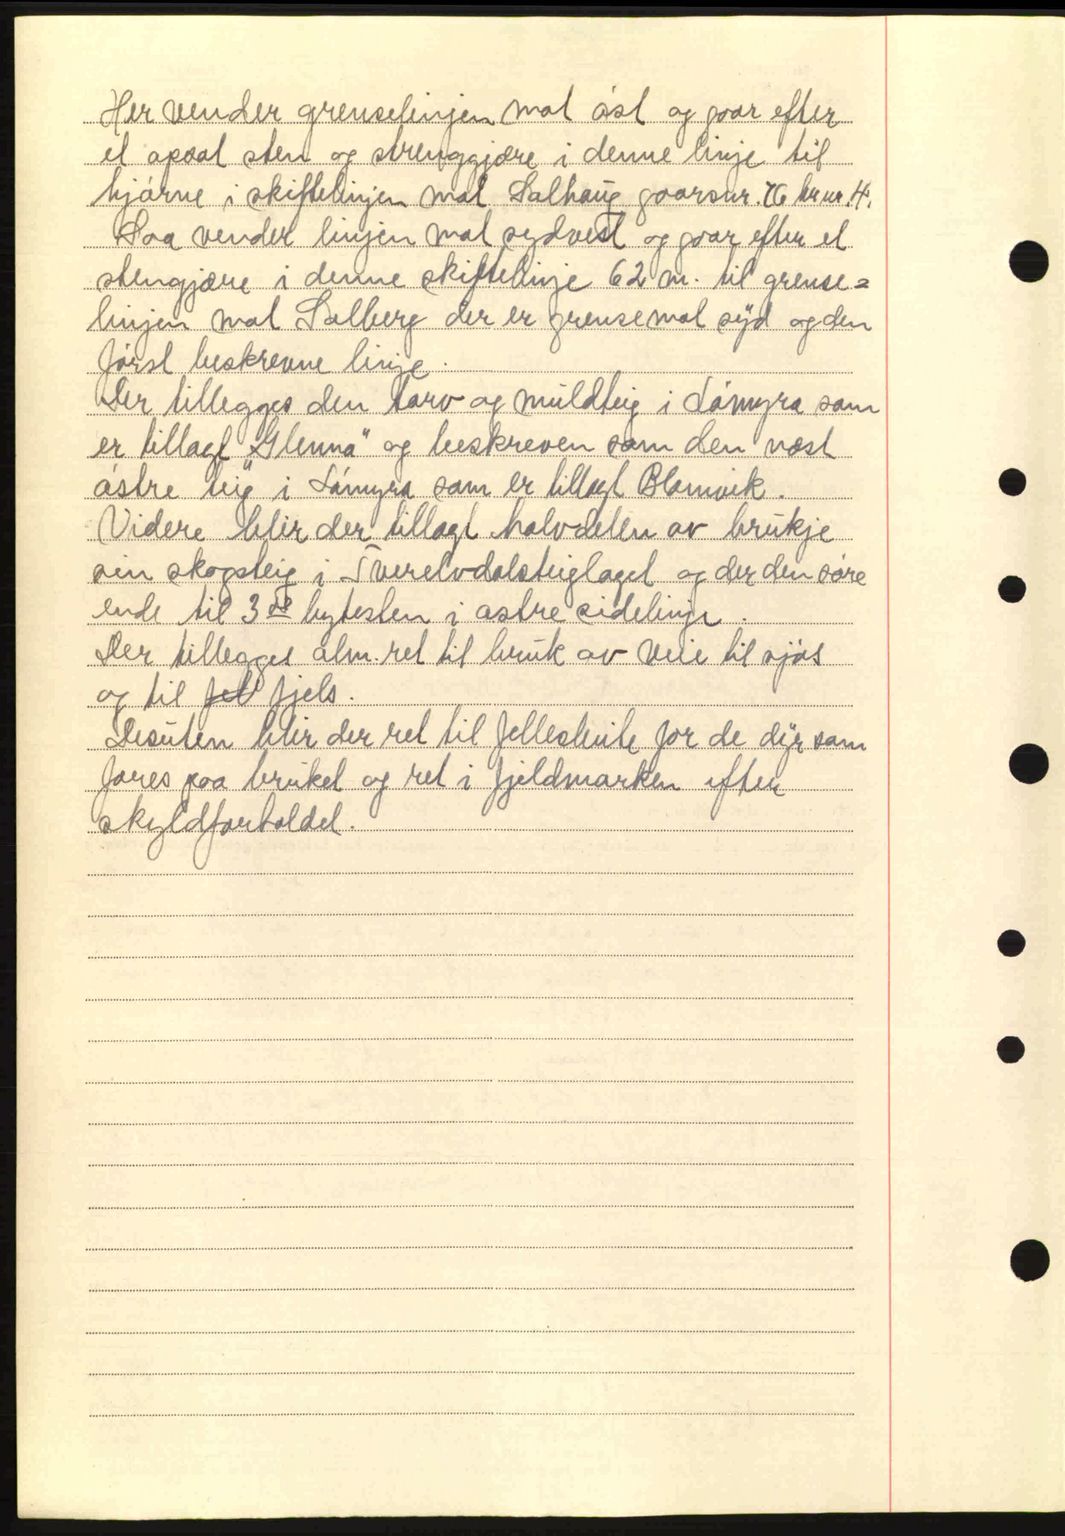 Her vender grenselinjen mot øst og gaar efter
et opsat sten og strenggjære i denne linje til
hjørne i skiftelinjen mot Solhaug gaarsnr. 76 br.nr. 4.
Saa vender linjen mot sydvest og gaar efter et
stengjære i denne skiftelinje 62 m. til grense=
linjen mot Solberg der er grense mot syd og den
først beskrevne linje.
Der tillegges den torv og muldteig i Lómyra som
er tillagt "Glenna" og beskreven som den næst
østre teig i Lómyra som er tillagt Blomvik.
Videre blir der tillagt halvdelen av brukje
sin skogsteig i Tverelvdalsteiglaget og der den søre
ende til 3de bytesten i østre sidelinje.
Der tillegges alm. ret til bruk av veie til sjøs
og til fjel fjels.
Desuten blir der ret til fellesbeite for de dyr som
fores paa bruket og ret i fjeldmarken efter
skyldforholdet.